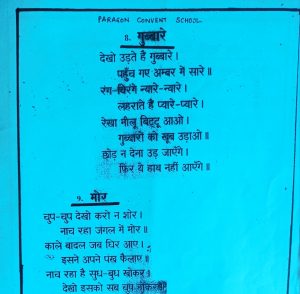 PARAGON CONVENT SCHOOL
8. गुब्बारे
देखो उड़ते हैं गुब्बारे।
पहुँच गए अम्बर में सारे॥
रंग-बिरंगे न्यारे-न्यारे।
लहराते हैं प्यारे-प्यारे॥
रेखा मीलू बिट्टू आओ।
गुब्बारों को खूब उड़ाओ॥
छोड़ न देना उड़ जाएँगे।
फिर ये हाथ नहीं आएँगे॥
9. मोर
चुप-चुप देखो करो न शोर।
नाच रहा जंगल में मोर॥
काले बादल जब घिर आए।
इसने अपने पंख फैलाए॥
नाच रहा है सुध-बुध खोकर।
देखो इसको सब चुप होकर॥